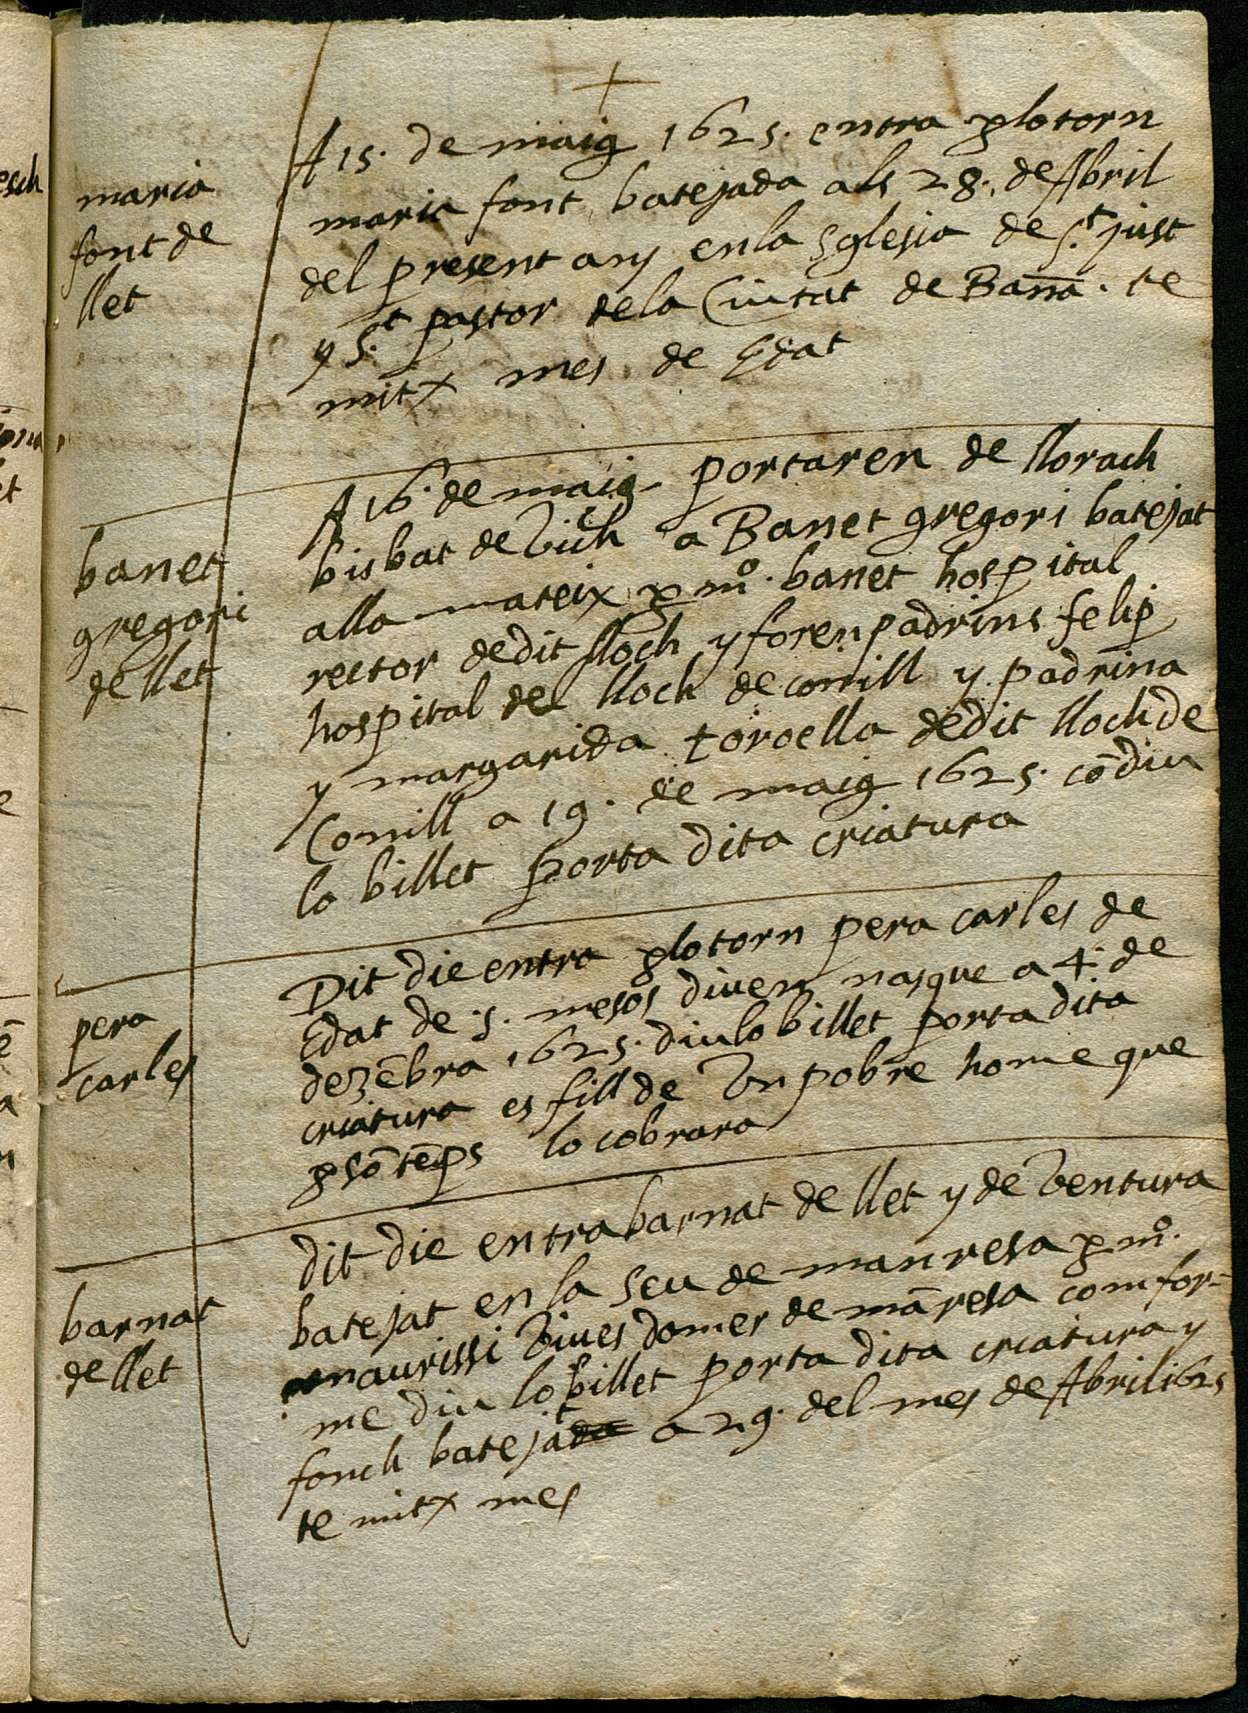 maria
font de
llet
A 15. de maig 1625. entra plotorn
maria font batejada als 28. de Abril
del present any en la Sglesia de S.t just
y S.t pastor de la Ciutat de Barna. te
mitx mes de Edat
banet
gregori
de llet
A 16. de maig portaren de llorach
bisbat de Vich a Banet gregori batejat
alla mateix p mº. banet hospital
rector de dit lloch y foren padrins felip
hospital del lloch de conill y padrina
y margarida toroella de dit lloch de
Conill a 19. de maig 1625. cō diu
lo billet porta dita criatura
pera
carles
Dit die entra plotorn pera carles de
Edat de .5. mesos diuen nasque a 4. de
dezēbra 1625. diu lo billet porta dita
criatura es fill de Vn pobre home que
p sō tēps lo cobrara
barnat
de llet
dit die entra barnat de llet y de Ventura
batejat en la Seu de manresa p mº.
maurissi Viues domer de māresa comfor=
me diu lo billet porta dita criatura y
fonch batejat a 29. del mes de Abril 1625
te mitx mes